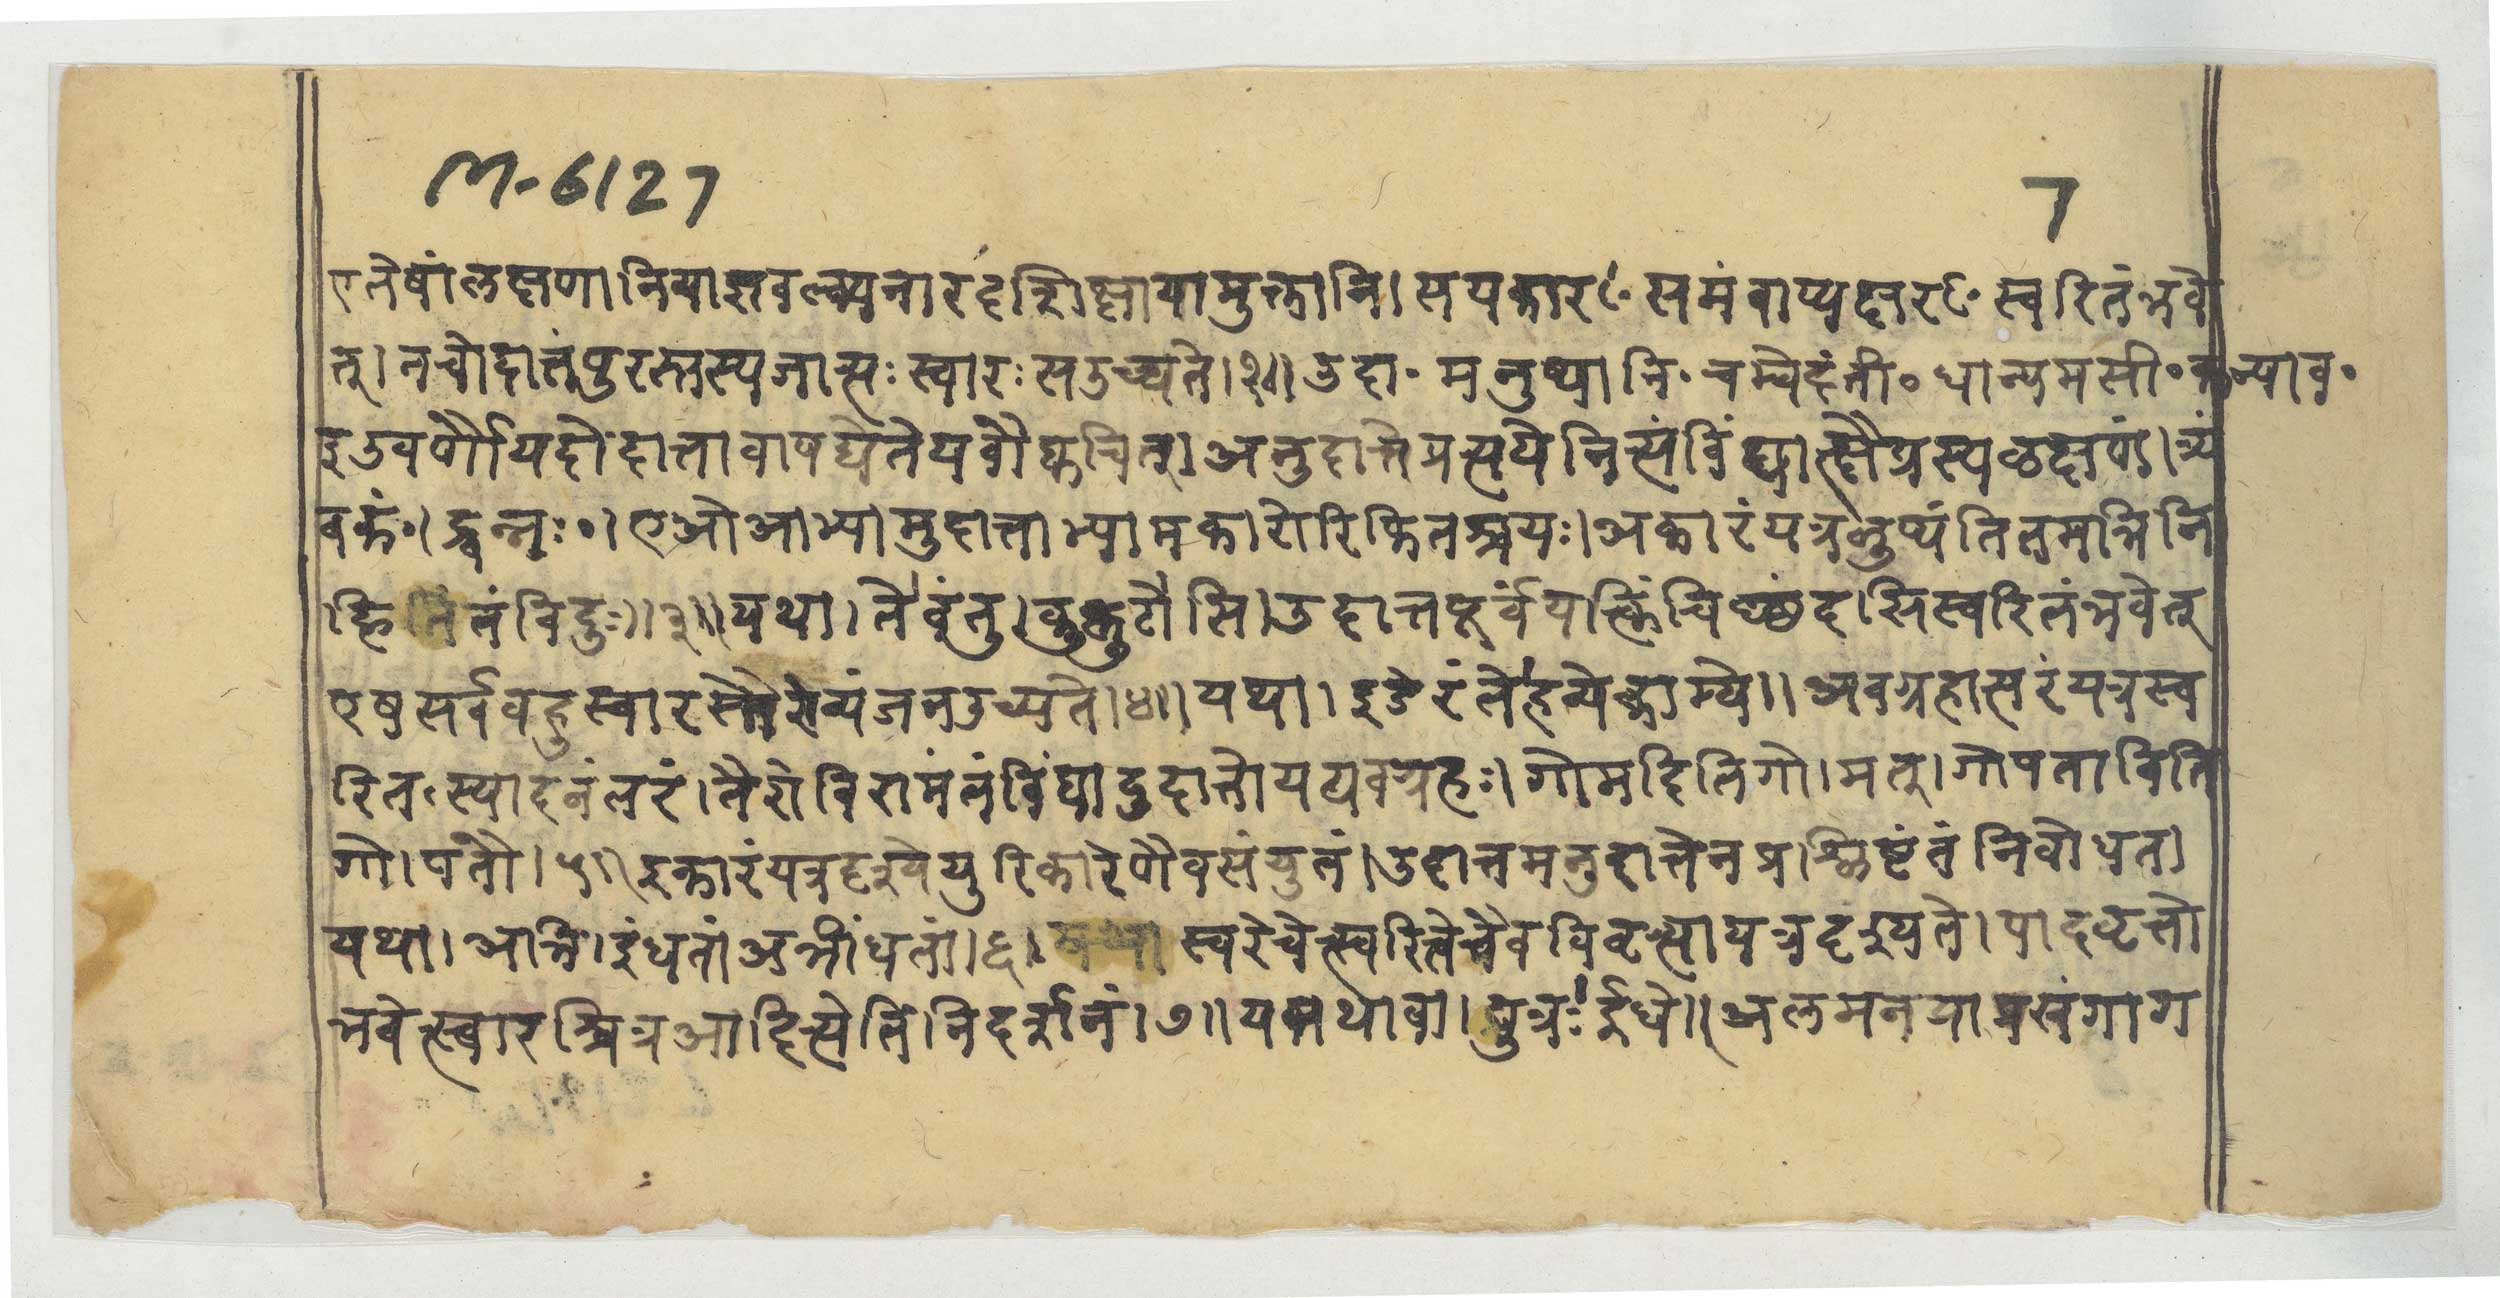 M-6127
7
एतेषां लक्षणानि याज्ञवल्क्यनारदशिक्षायामुक्तानि। सयकारꣳ समं वाप्यक्षरꣳ स्वरितं भवे
त्। न चोदात्तं पुरस्तस्य जात्यः स्वारः स उच्यते।१॥ उदा॰ मनुष्यानि॰ चम्वेदंती॰ धान्यमसी॰ कन्याव॰
इउवर्णौ यदोदात्तावापद्येते यवौ क्वचित्। अनुदात्ते प्रत्यये नित्यं विंद्यात्क्षैप्रस्य लक्षणं। त्र्यं
बकं॰। द्रुन्नः॰। एओआभ्यामुदात्ताभ्यामकारो रिफितश्च यः। अकारं यत्र लुप्यंति तमभिनि
हितं तं विदुः॥३॥ यथा। तेवंतु। कुक्कुटोसि। उदात्तपूर्वं यत्किंचिच्छंदसि स्वरितं भवेत्
एष सर्वबहुस्वारस्तैरोव्यंजन उच्यते।४॥ यथा। इडेरंतेहव्येकाम्ये॥ अवग्रहात्परं यत्र स्व
रित स्यादनंतरं। तैरोविरामं तं विंद्यादुदात्तो यद्यवग्रहः। गोमदितिगो। मत्। गोपताविति
गो। पतौ। ५॥ इकारं यत्र दृश्येयुरिकारेणैव संयुतं। उदात्तमनुदात्तेन प्रश्लिष्टं तं निबोधत।
यथा। अभि। इंधतां अभींधतां।६। स्वरे चेत्स्वरितेचैव विवृत्त्या यत्र दृश्यते। पादवृत्तो
भवेत्स्वारश्वित्र आदित्येति निदर्शनं।७॥ यथा वा। पुत्रः ईधे॥ अलमनया प्रसंगाग